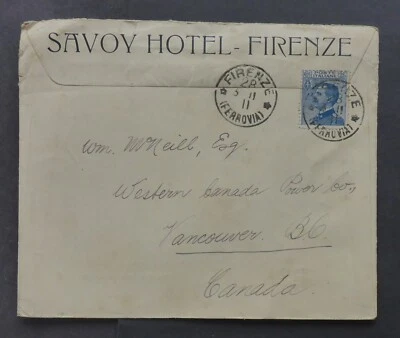 SAVOY HOTEL - FIRENZE
* FIRENZE *
28
11
11
(FERROVIA)
(FERROVIA)
Wm. McNeill, Esq.
Western Canada Power Co.,
Vancouver. B.C.
Canada.